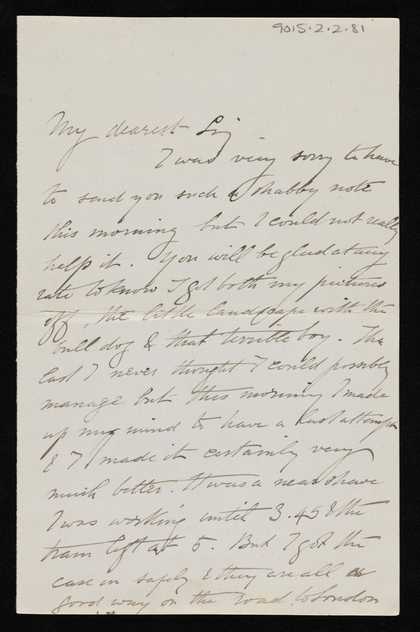 9015.2.2.81
My dearest Liz
I was very sorry to have
to send you such a shabby note
this morning but I could not really
help it. You will be glad at any
rate to know I got both my pictures
off, the little landscape with the
bull dog & that terrible boy. The
last I never thought I could possibly
manage but this morning I made
up my mind to have a last attempt
& I made it certainly very
much better. It was a near shave
I was working until 3.45 & the
train left at 5. But I got the
case in safely & they are all a
good way on the road to London